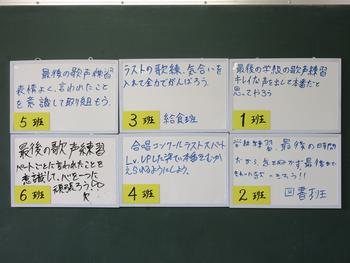 最後の歌声練習
表情よく、言われたこと
を意識して取り組もう。
5 班
ラストの歌練、気合いを
入れて全力でがんばろう
3 班
給食班
最後の学級の歌声練習
キレイな声を出して本番だと
思ってやろう
1 班
最後の歌声練習
パートごとに言われたことを
意識して、心を一つに
頑張ろう
6 班
合唱コンクールラストスパート
Lv.UPした姿で本番をむか
えられるようにしよう。
4 班
学校練習、最後の1時間
だから、
2 班
図書班